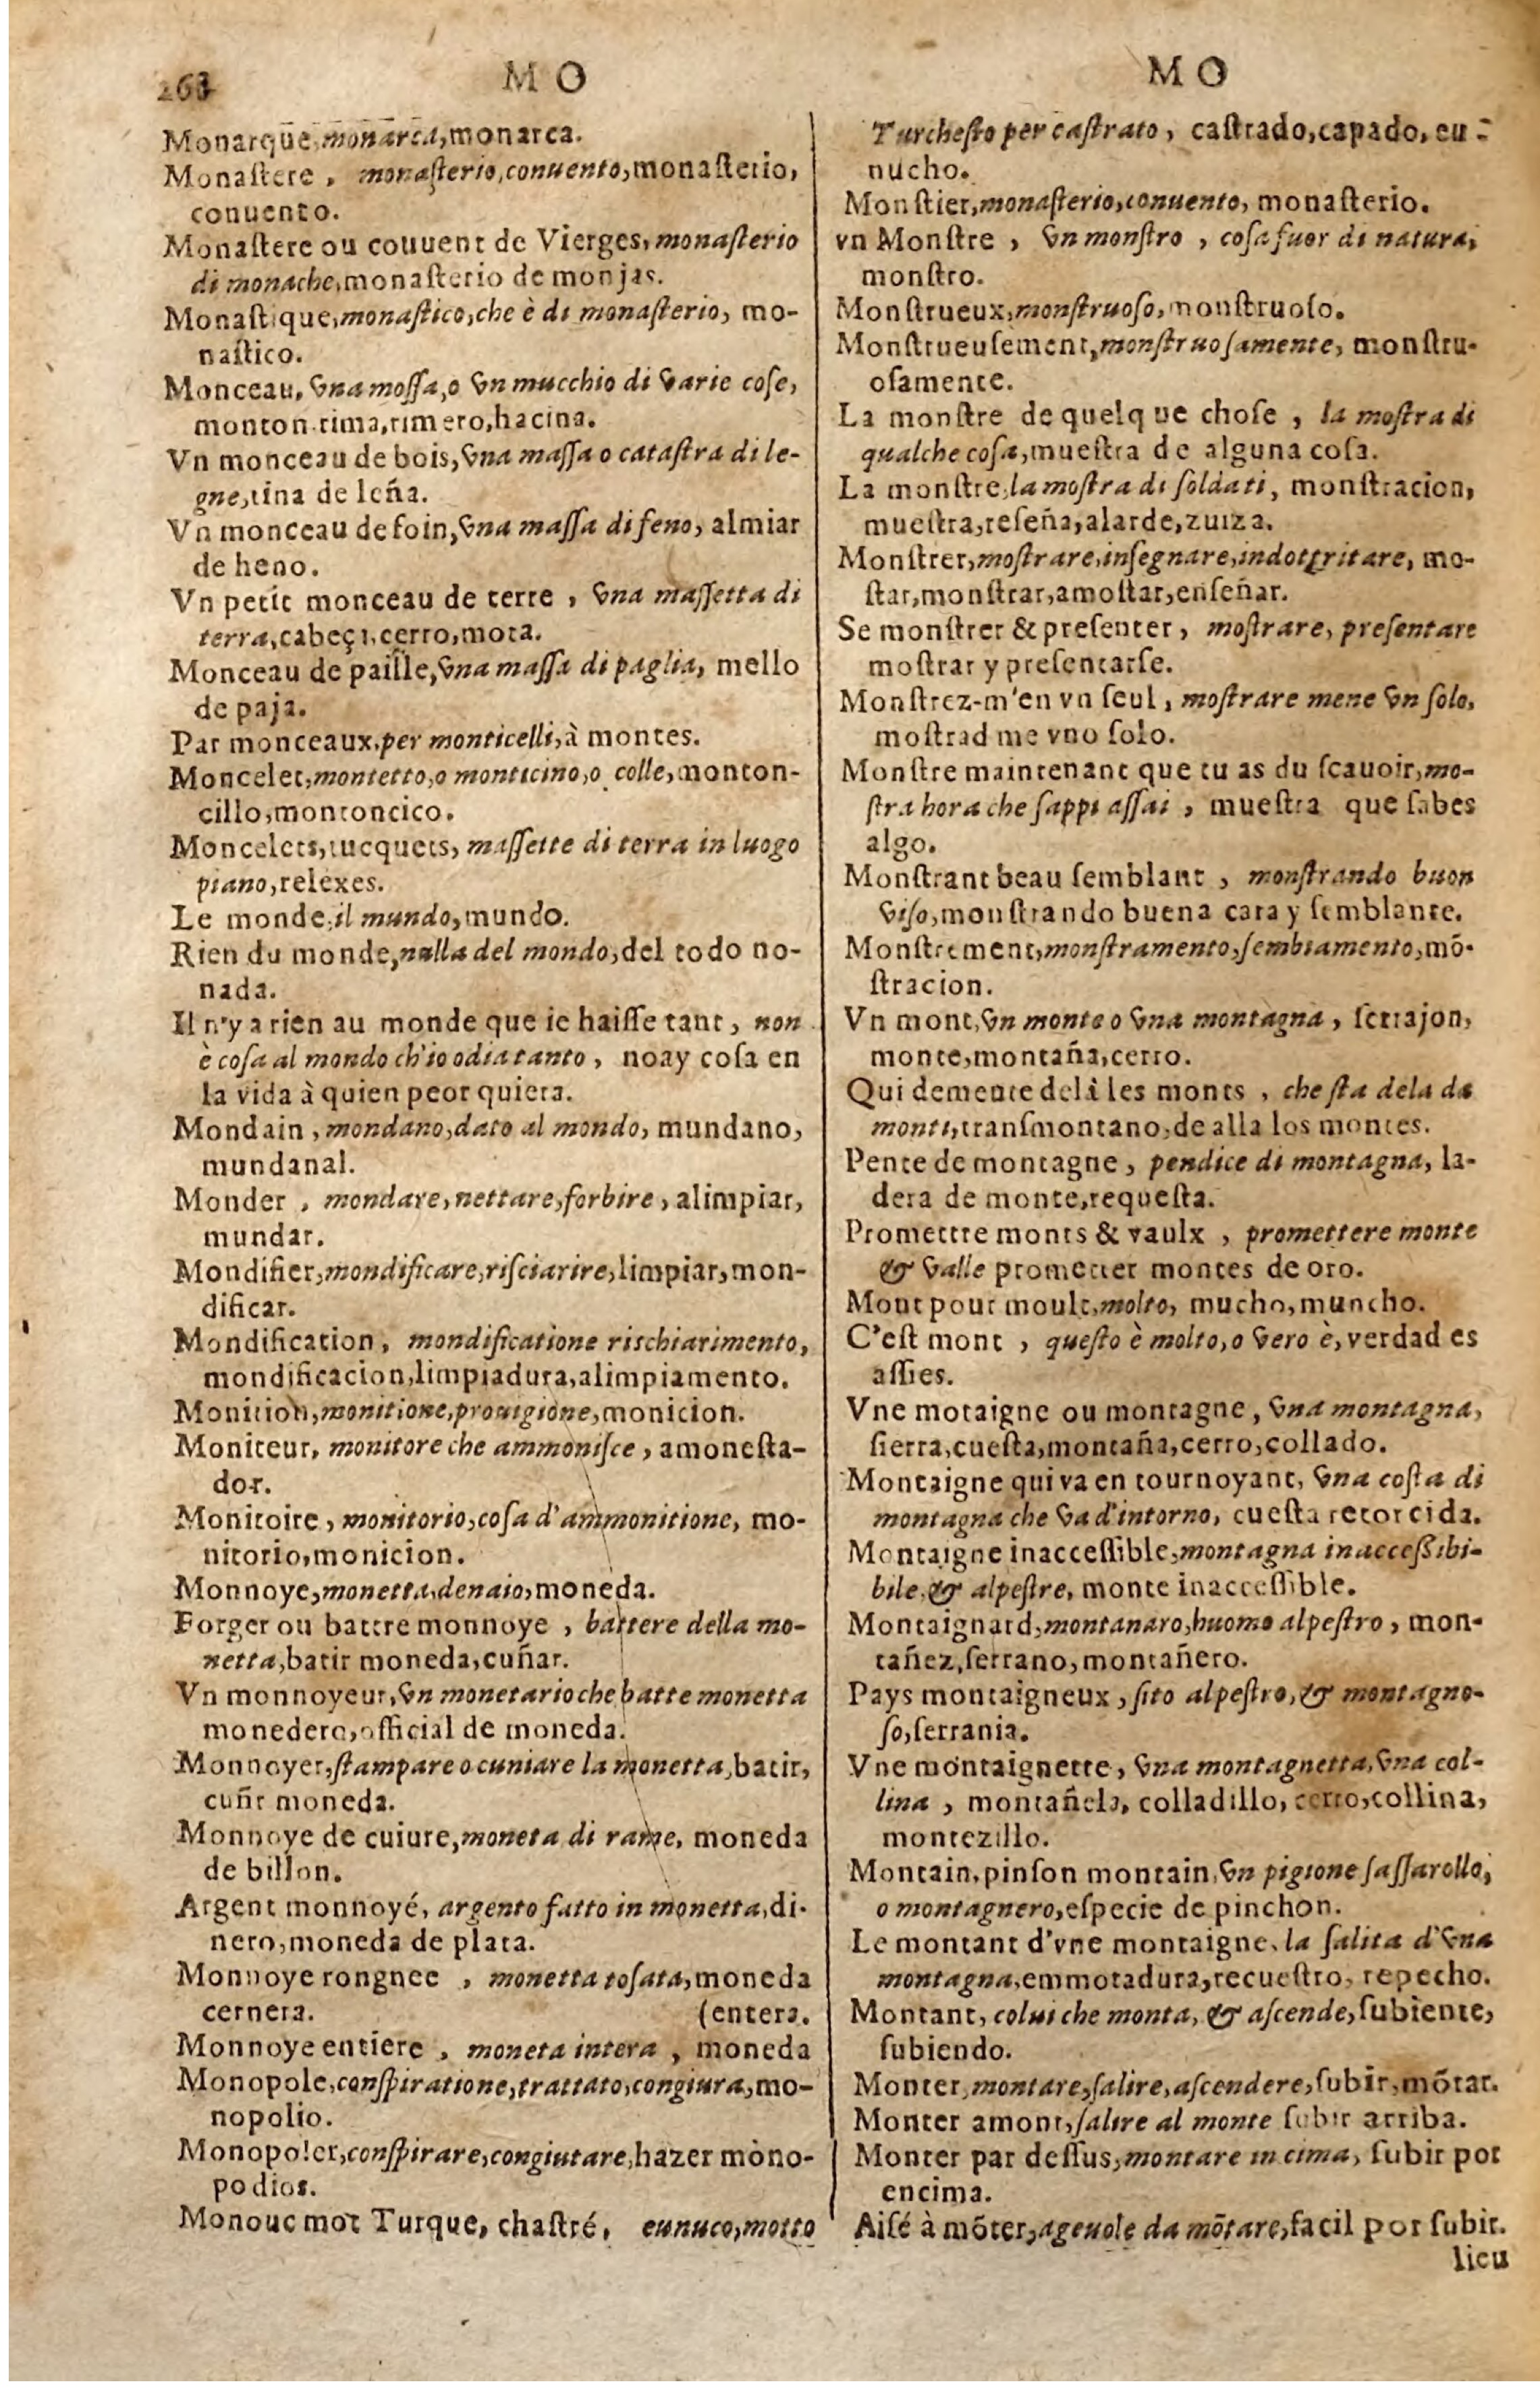 268
M O
Monarque, monarca, monarca.
Monastere, monasterio, conuento, monasterio,
conuento.
Monastere ou couuent de Vierges, monasterio
di monache, monasterio de monjas.
Monastique, monastico, che è di monasterio, mo-
nastico.
Monceau, vna mossa, o vn mucchio di varie cose,
monton. rima, rimero, hacina.
Vn monceau de bois, vna massa o catastra di le-
gne, tina de leña.
Vn monceau de foin, vna massa di feno, almiar
de heno.
Vn petit monceau de terre, vna massetta di
terra, cabeç1, cerro, mota.
Monceau de paille, vna massa di paglia, mello
de paja.
Par monceaux, per monticelli, à montes.
Moncelet, montetto, o monticino, o colle, monton-
cillo, montoncico.
Moncelets, tucquets, massette di terra in luogo
piano, relexes.
Le monde, il mundo, mundo.
Rien du monde, nulla del mondo, del todo no-
nada.
Il n'y a rien au monde que ie haisse tant, non
è cosa al mondo ch'io odia tanto, noay cosa en
la vida à quien peor quiera.
Mondain, mondano, dato al mondo, mundano,
mundanal.
Monder, mondare, nettare, forbire, alimpiar,
mundar.
Mondifier, mondificare, risciarire, limpiar, mon-
dificar.
Mondification, mondificatione rischiarimento,
mondificacion, limpiadura, alimpiamento.
Monition, monitione, prouigione, monicion.
Moniteur, monitore che ammonisce, amonesta-
dor.
Monitoire, monitorio, cosa d'ammonitione, mo-
nitorio, monicion.
Monnoye, monetta, denaio, moneda.
Forger ou battre monnoye, battere della mo-
netta, batir moneda, cuñar.
Vn monnoyeur, vn monetario che batte monetta
monedero, official de moneda.
Monnoyer, stampare o cuniare la monetta, batir,
cuñr moneda.
Monnoye de cuiure, moneta di rame, moneda
de billon.
Argent monnoyé, argento fatto in monetta, di-
nero, moneda de plata.
Monnoye rongnee, monetta tosata, moneda
cernera. (entera.
Monnoye entiere, moneta intera, moneda
Monopole, conspiratione, trattato, congiura, mo-
nopolio.
Monopoler, conspirare, congiutare, hazer mono-
podios.
Monouc mot Turque, chastré, eunuco, motto
M O
Turchesto per castrato, castrado, capado, eu-
nucho.
Monstier, monasterio, conuento, monasterio.
vn Monstre, vn monstro, cosa fuor di natura,
monstro.
Monstrueux, monstruoso, monstruoso.
Monstrueusement, monstruosamente, monstru-
osamente.
La monstre de quelque chose, la mostra di
qualche cosa, muestra de alguna cosa.
La monstre, la mostra di soldati, monstracion,
muestra, reseña, alarde, zuiza.
Monstrer, mostrare, insegnare, indottritare, mo-
star, monstrar, amostar, enseñar.
Se monstrer & presenter, mostrare, presentare
mostrar y presentarse.
Monstrez-m'en vn seul, mostrare mene vn solo,
mostrad me vno solo.
Monstre maintenant que tu as du scauoir, mo-
stra hora che sappi assai, muestra que sabes
algo.
Monstrant beau semblant, monstrando buon
viso, monstrando buena cara y semblante.
Monstrement, monstramento, sembiamento, mõ-
stracion.
Vn mont, vn monte o vna montagna, serrajon,
monte, montaña, cerro.
Qui demeure delà les monts, che sta dela da
monti, transmontano, de alla los montes.
Pente de montagne, pendice di montagna, la-
dera de monte, requesta.
Promettre monts & vaulx, promettere monte
& valle prometter montes de oro.
Mout pour moult, molto, mucho, muncho.
C'est mont, questo è molto, o vero è, verdad es
assies.
Vne motaigne ou montagne, vna montagna,
sierra, cuesta, montaña, cerro, collado.
Montaigne qui va en tournoyant, vna costa di
montagna che va d'intorno, cuesta retorcida.
Montaigne inaccessible, montagna inaccessibi-
bile, & alpestre, monte inaccessible.
Montaignard, montanaro, huomo alpestro, mon-
tañez, serrano, montañero.
Pays montaigneux, sito alpestro, & montagno-
so, serrania.
Vne montaignette, vna montagnetta, vna col-
lina, montañela, colladillo, cerro, collina,
montezillo.
Montain, pinson montain, vn pigione sassarollo,
o montagnero, especie de pinchon.
Le montant d'vne montaigne, la salita d'vna
montagna, emmotadura, recuestro, repecho.
Montant, colui che monta, & ascende, subiente,
subiendo.
Monter, montare, salire, ascendere, subir, mõtar.
Monter amont, salire al monte subir arriba.
Monter par dessus, montare in cima, subir por
encima.
Aisé à mõter, ageuole da mõtare, facil por subir.
lieu